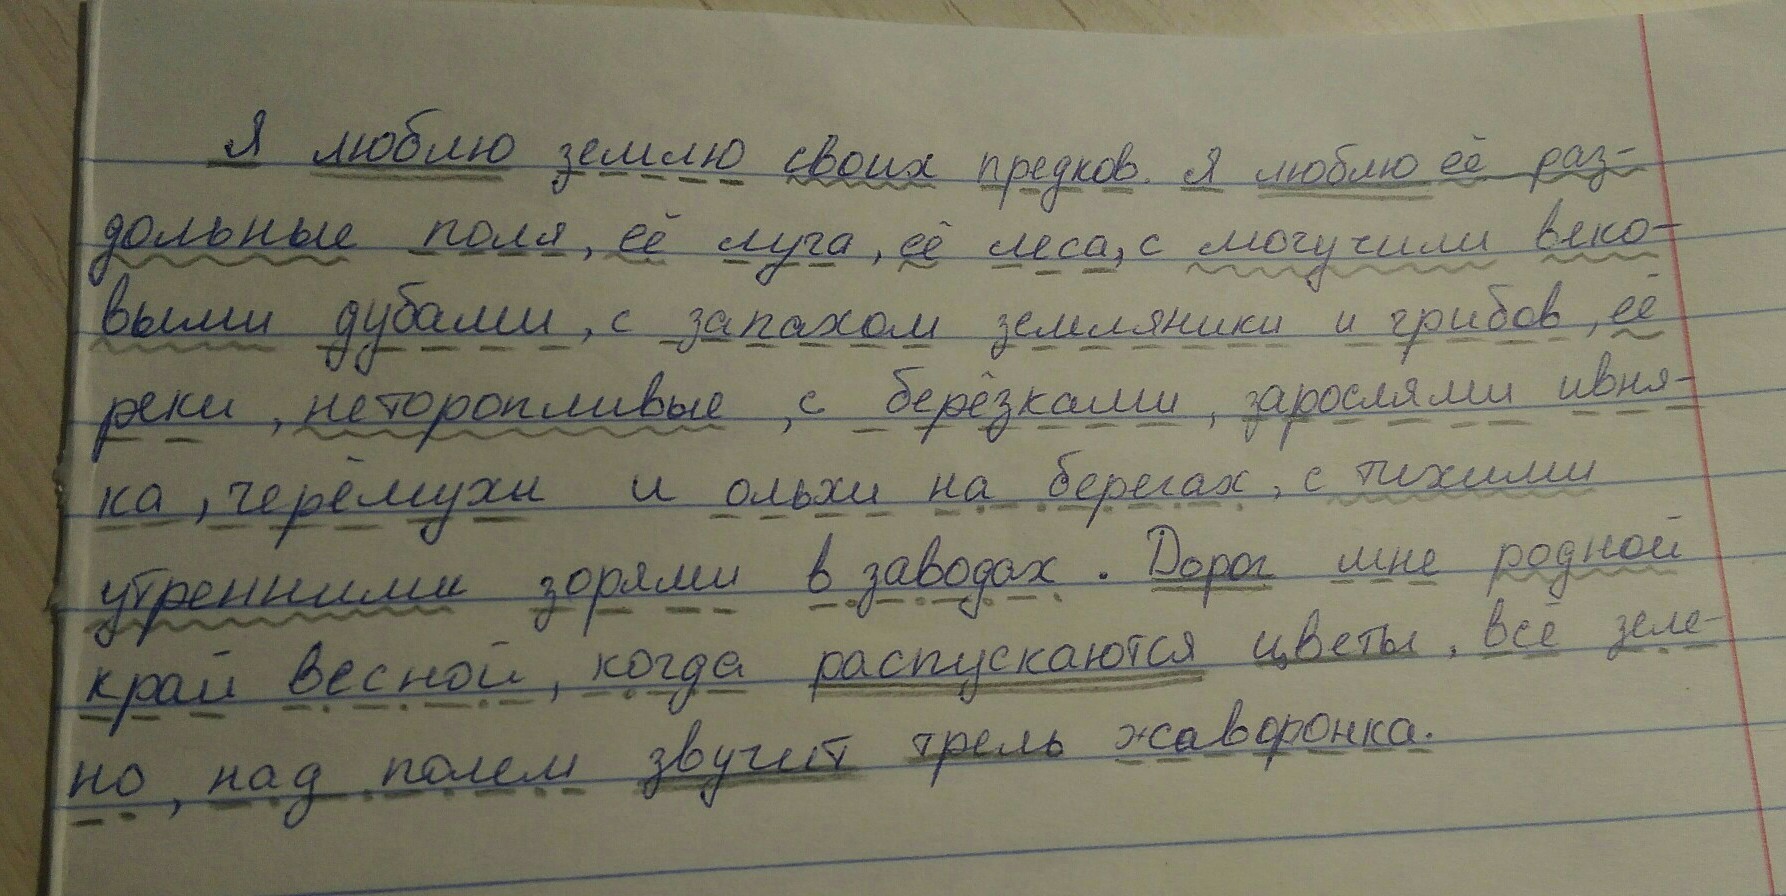 Я люблю землю своих предков. Я люблю её раз-
дольные поля, её луга, её леса, с могучими веко-
выми дубами, с запахом земляники и грибов, её
реки, неторопливые, с берёзками, зарослями ивня-
ка, черёмухи и ольхи на берегах, с тихими
утренними зорями в заводах. Дорог мне родной
край весной, когда распускаются цветы, всё зеле-
но, над полем звучит трель жаворонка.